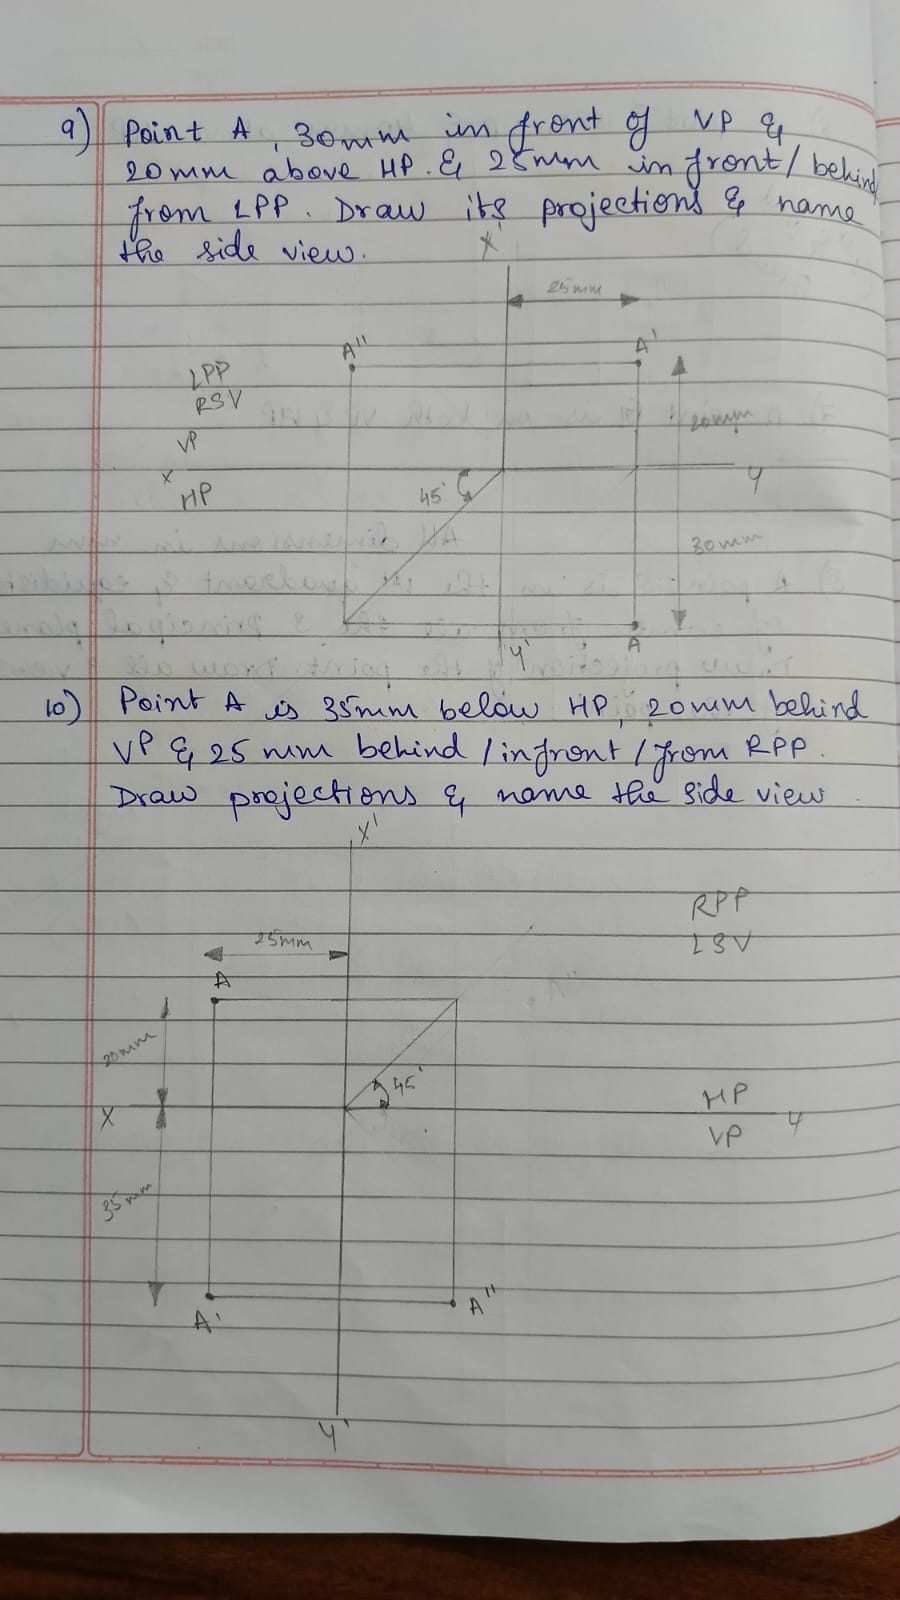 9) Point A, 30mm in front of VP &
20mm above HP. & 25mm in front/behind
from LPP. Draw its projections & name
the side view.
X'
25mm
A"
A'
LPP
RSV
20mm
VP
X
Y
HP
45°
30mm
Y'
A
10) Point A is 35mm below HP, 20mm behind
VP & 25 mm behind/infront/from RPP.
Draw projections & name the side view
X'
RPP
LSV
25mm
A
20mm
45°
X
HP
VP
Y
35mm
A'
A"
Y'